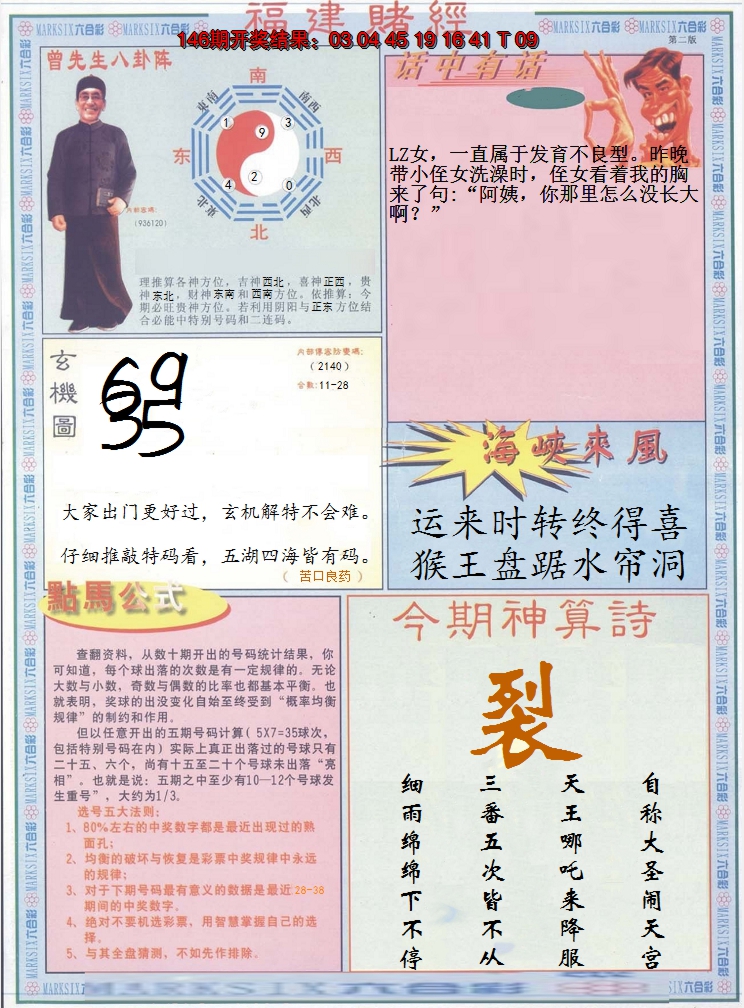 福建賭經
146期开奖结果：03 04 45 19 16 41 T 09
第二版
MARKSIX六合彩
曾先生八卦阵
南
東南
南西
1
9
3
东
西
4
2
0
東北
北西
北
内部密碼:
(936120)
理推算各神方位，吉神西北，喜神正西，贵
神东北，财神东南和西南方位。依推算：今
期必旺贵神方位。若利用阴阳与正东方位结
合必能中特别号码和二连码。
话中有话
LZ女，一直属于发育不良型。昨晚
带小侄女洗澡时，侄女看着我的胸
来了句:“阿姨，你那里怎么没长大
啊？”
玄機圖
69
35
（2140）
合数:11-28
大家出门更好过，玄机解特不会难。
仔细推敲特码看，五湖四海皆有码。
（ 苦口良药 ）
海峽來風
运来时转终得喜
猴王盘踞水帘洞
點馬公式
查翻资料，从数十期开出的号码统计结果，你
可知道，每个球出落的次数是有一定规律的。无论
大数与小数，奇数与偶数的比率也都基本平衡。也
就表明，奖球的出没变化自始至终受到“概率均衡
规律”的制约和作用。
但以任意开出的五期号码计算( 5X7=35球次，
包括特别号码在内）实际上真正出落过的号球只有
二十五、六个，尚有十五至二十个号球未出落“亮
相”。也就是说：五期之中至少有10—12个号球发
生重号”，大约为1/3。
选号五大法则：
1、80%左右的中奖数字都是最近出现过的熟
面孔；
2、均衡的破坏与恢复是彩票中奖规律中永远
的规律；
3、对于下期号码最有意义的数据是最近28-38
期间的中奖数字。
4、绝对不要机选彩票，用智慧掌握自己的选
择。
5、与其全盘猜测，不如先作排除。
今期神算詩
裂
自称大圣闹天宫
天王哪吒来降服
三番五次皆不从
细雨绵绵下不停